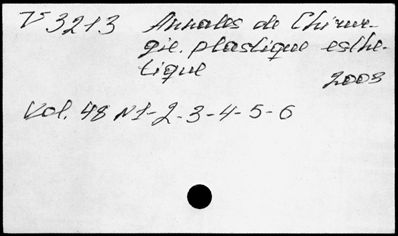 V 3213 Annales de Chirur-
gie plastique esthe-
tique
2003
Vol. 48 N1-2-3-4-5-6